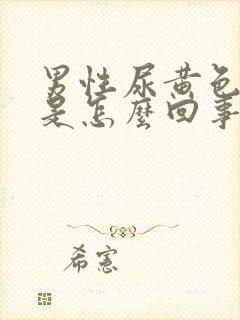 男性尿黄色
是怎麼回事
希憲